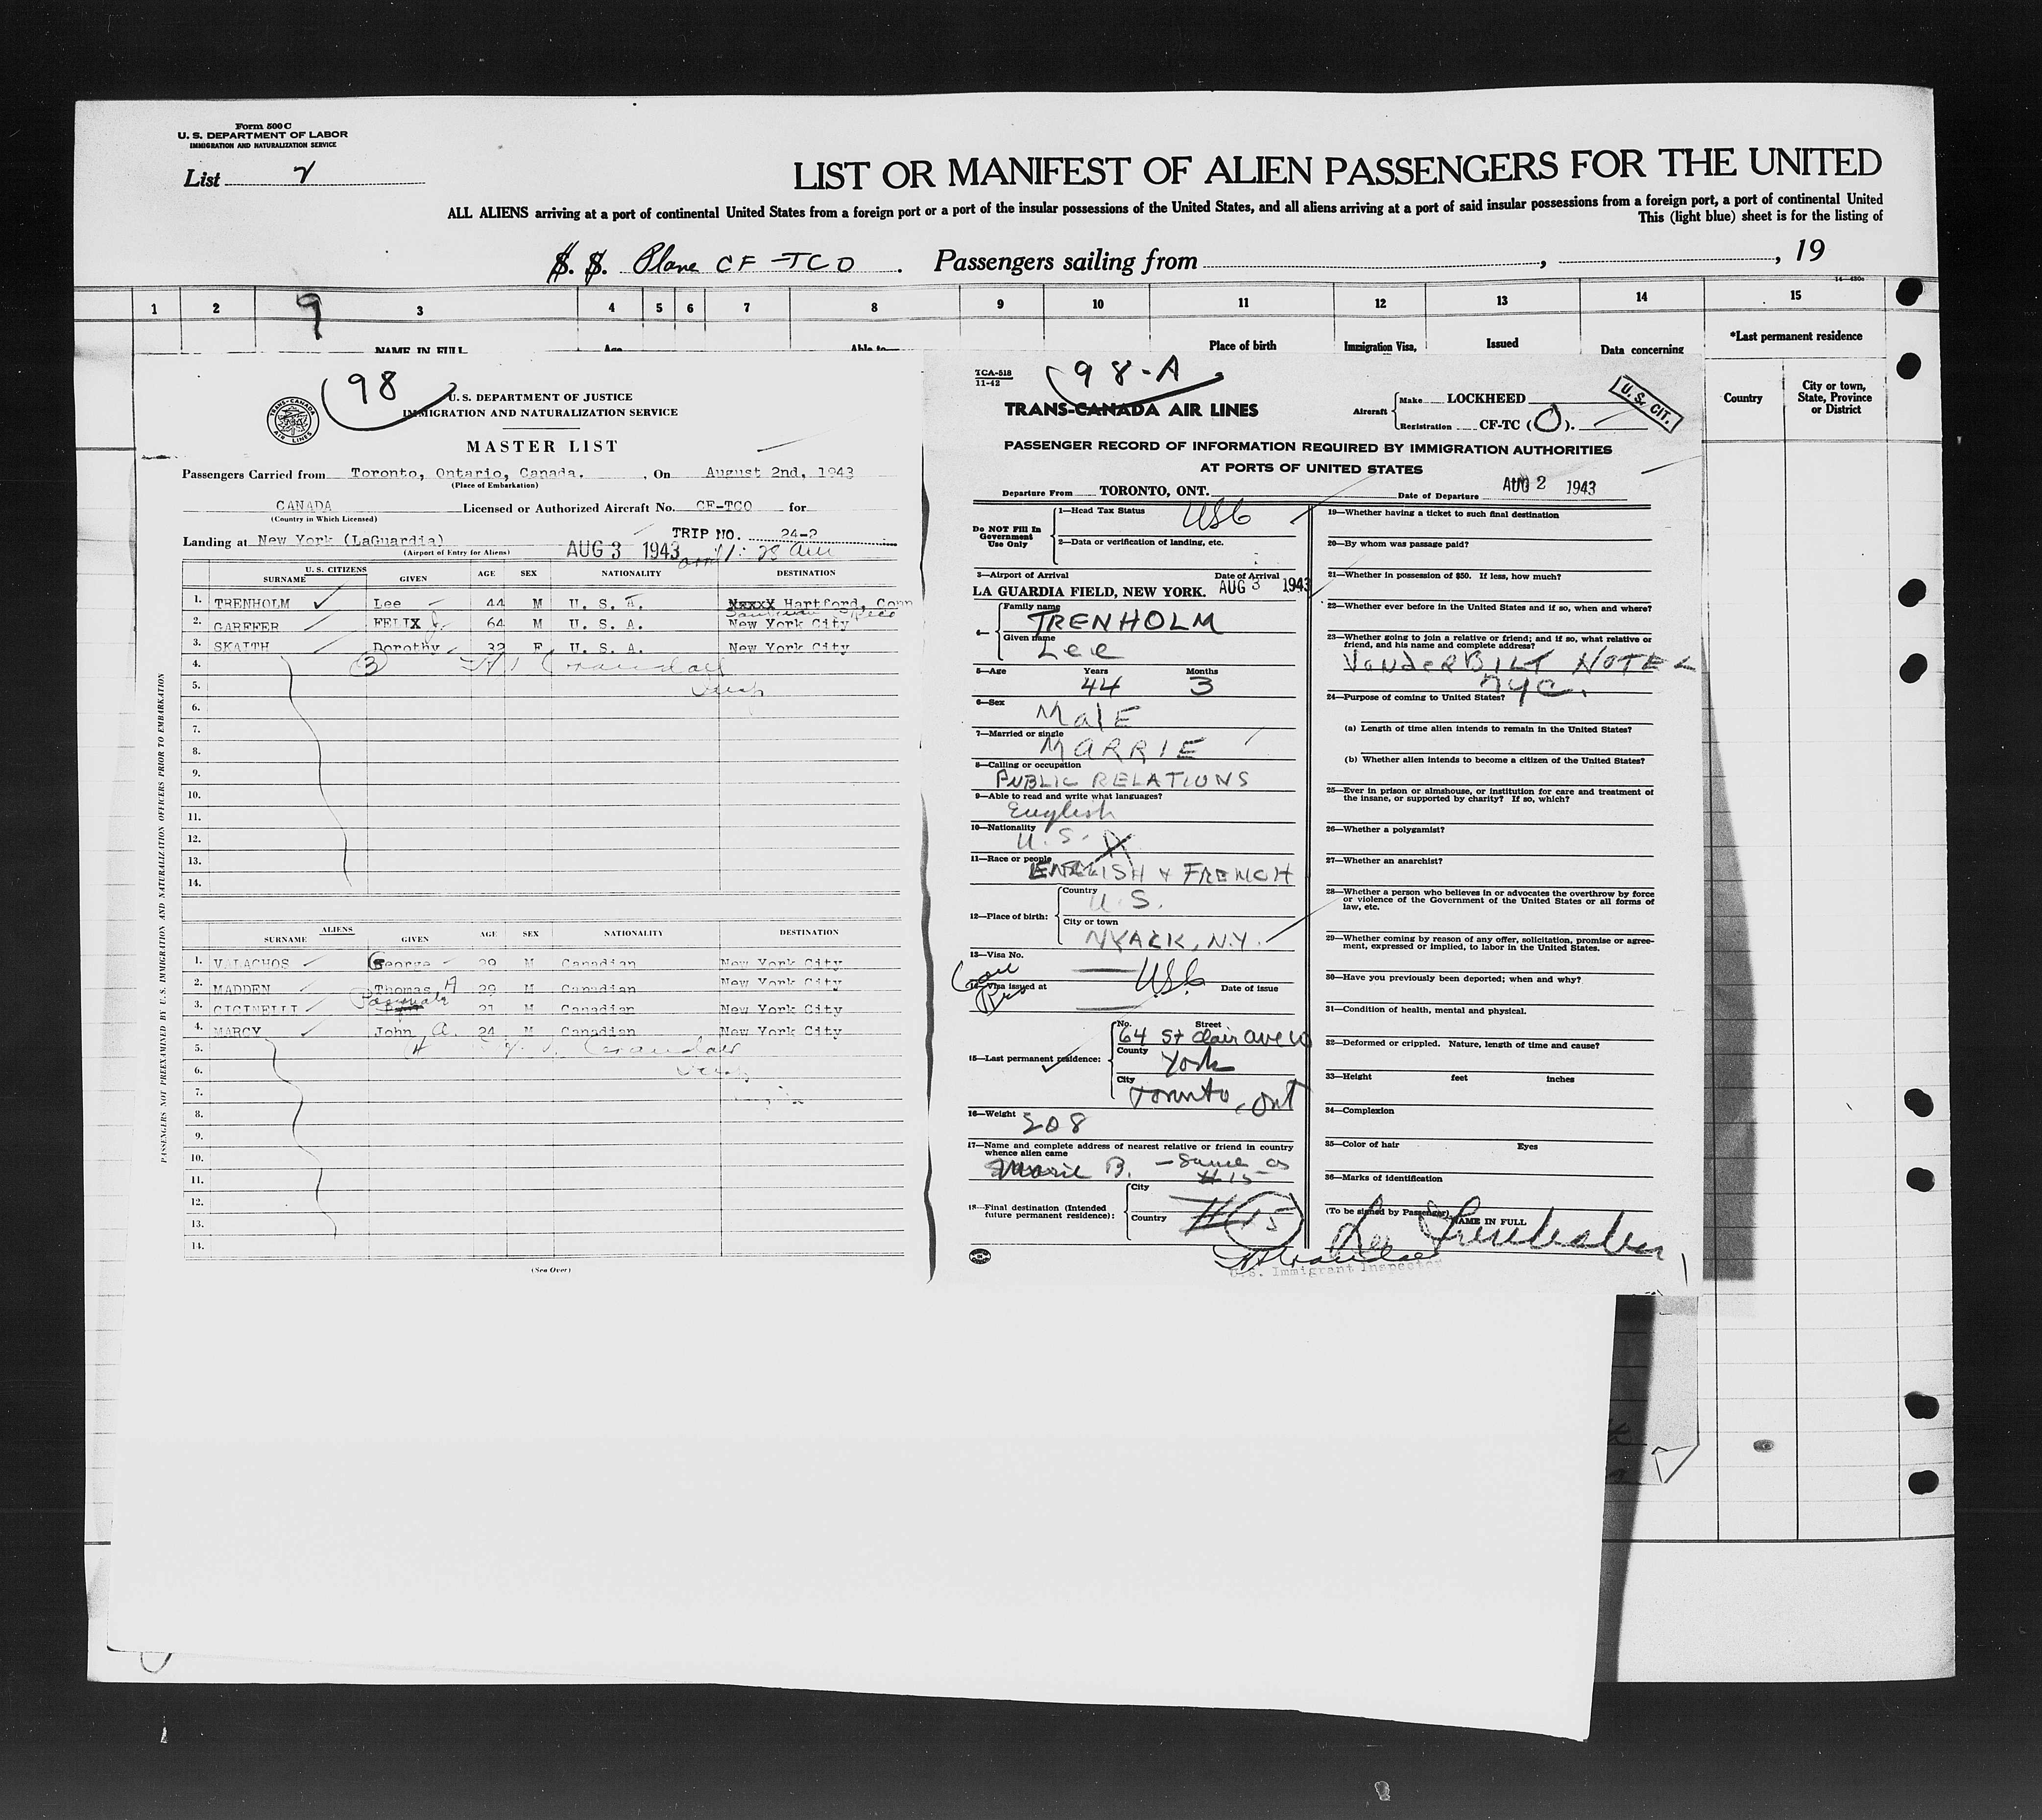 Form 500 C
U. S. DEPARTMENT OF LABOR
IMMIGRATION AND NATURALIZATION SERVICE
List 2
LIST OR MANIFEST OF ALIEN PASSENGERS FOR THE UNITED
ALL ALIENS arriving at a port of continental United States from a foreign port or a port of the insular possessions of the United States, and all aliens arriving at a port of said insular possessions from a foreign port, a port of continental United
This (light blue) sheet is for the listing of
S. S. Plane CF-TCO. Passengers sailing from , , 19
1 2 3 4 5 6 7 8 9 10 11 12 13 14 15
9
NAME IN FULL Age Able to Place of birth Immigration Visa, Issued Data concerning *Last permanent residence
Country City or town, State, Province or District
98
TRANS-CANADA AIR LINES
U. S. DEPARTMENT OF JUSTICE
IMMIGRATION AND NATURALIZATION SERVICE
MASTER LIST
Passengers Carried from Toronto, Ontario, Canada. , On August 2nd, 1943
(Place of Embarkation)
CANADA Licensed or Authorized Aircraft No. CF-TCO for
(Country in Which Licensed)
TRIP NO. 24-2
Landing at New York (LaGuardia) AUG 3 1943 11:28 am
(Airport of Entry for Aliens)
U. S. CITIZENS
SURNAME GIVEN AGE SEX NATIONALITY DESTINATION
1. TRENHOLM Lee 44 M U. S. A. Hartford, Conn
2. GARFFER FELIX J. 64 M U. S. A. New York City
3. SKAITH Dorothy 32 F U. S. A. New York City
4. (3)
5.
6.
7.
8.
9.
10.
11.
12.
13.
14.
ALIENS
SURNAME GIVEN AGE SEX NATIONALITY DESTINATION
1. VALACHOS George 29 M Canadian New York City
2. MADDEN Thomas A 29 M Canadian New York City
3. CICINELLI Pasquale 21 M Canadian New York City
4. MARCY John A. 24 M Canadian New York City
5. 4
6.
7.
8.
9.
10.
11.
12.
13.
14.
(See Over)
PASSENGERS NOT PREEXAMINED BY U. S. IMMIGRATION AND NATURALIZATION OFFICERS PRIOR TO EMBARKATION
TCA-518
11-42
98-A
TRANS-CANADA AIR LINES
Aircraft Make LOCKHEED
Registration CF-TC (O).
U. S. CIT.
PASSENGER RECORD OF INFORMATION REQUIRED BY IMMIGRATION AUTHORITIES
AT PORTS OF UNITED STATES
Departure From TORONTO, ONT. Date of Departure AUG 2 1943
Do NOT Fill In Government Use Only
1—Head Tax Status USC
2—Data or verification of landing, etc.
3—Airport of Arrival Date of Arrival
LA GUARDIA FIELD, NEW YORK. AUG 3 1943
4— Family name TRENHOLM
Given name Lee
5—Age Years 44 Months 3
6—Sex MalE
7—Married or single MARRIE
8—Calling or occupation
PUBLIC RELATIONS
9—Able to read and write what languages?
English
10—Nationality
U. S.
11—Race or people
ENGLISH & FRENCH
12—Place of birth: Country U. S.
City or town
NYACK, N.Y.
13—Visa No.
14—Visa issued at USC Date of issue
15—Last permanent residence: No. Street
64 St Clair Ave W
County York
City Toronto, Ont
16—Weight 208
17—Name and complete address of nearest relative or friend in country
whence alien came
Marie B. — Same as
#15
18—Final destination (Intended
future permanent residence): City
Country #15
19—Whether having a ticket to such final destination
20—By whom was passage paid?
21—Whether in possession of $50. If less, how much?
22—Whether ever before in the United States and if so, when and where?
23—Whether going to join a relative or friend; and if so, what relative or
friend, and his name and complete address?
VANDERBILT HOTEL
NYC.
24—Purpose of coming to United States?
(a) Length of time alien intends to remain in the United States?
(b) Whether alien intends to become a citizen of the United States?
25—Ever in prison or almshouse, or institution for care and treatment of
the insane, or supported by charity? If so, which?
26—Whether a polygamist?
27—Whether an anarchist?
28—Whether a person who believes in or advocates the overthrow by force
or violence of the Government of the United States or all forms of
law, etc.
29—Whether coming by reason of any offer, solicitation, promise or agree-
ment, expressed or implied, to labor in the United States.
30—Have you previously been deported; when and why?
31—Condition of health, mental and physical.
32—Deformed or crippled. Nature, length of time and cause?
33—Height feet inches
34—Complexion
35—Color of hair Eyes
36—Marks of identification
(To be signed by Passenger) NAME IN FULL
Lee Trenholm
U.S. Immigrant Inspector